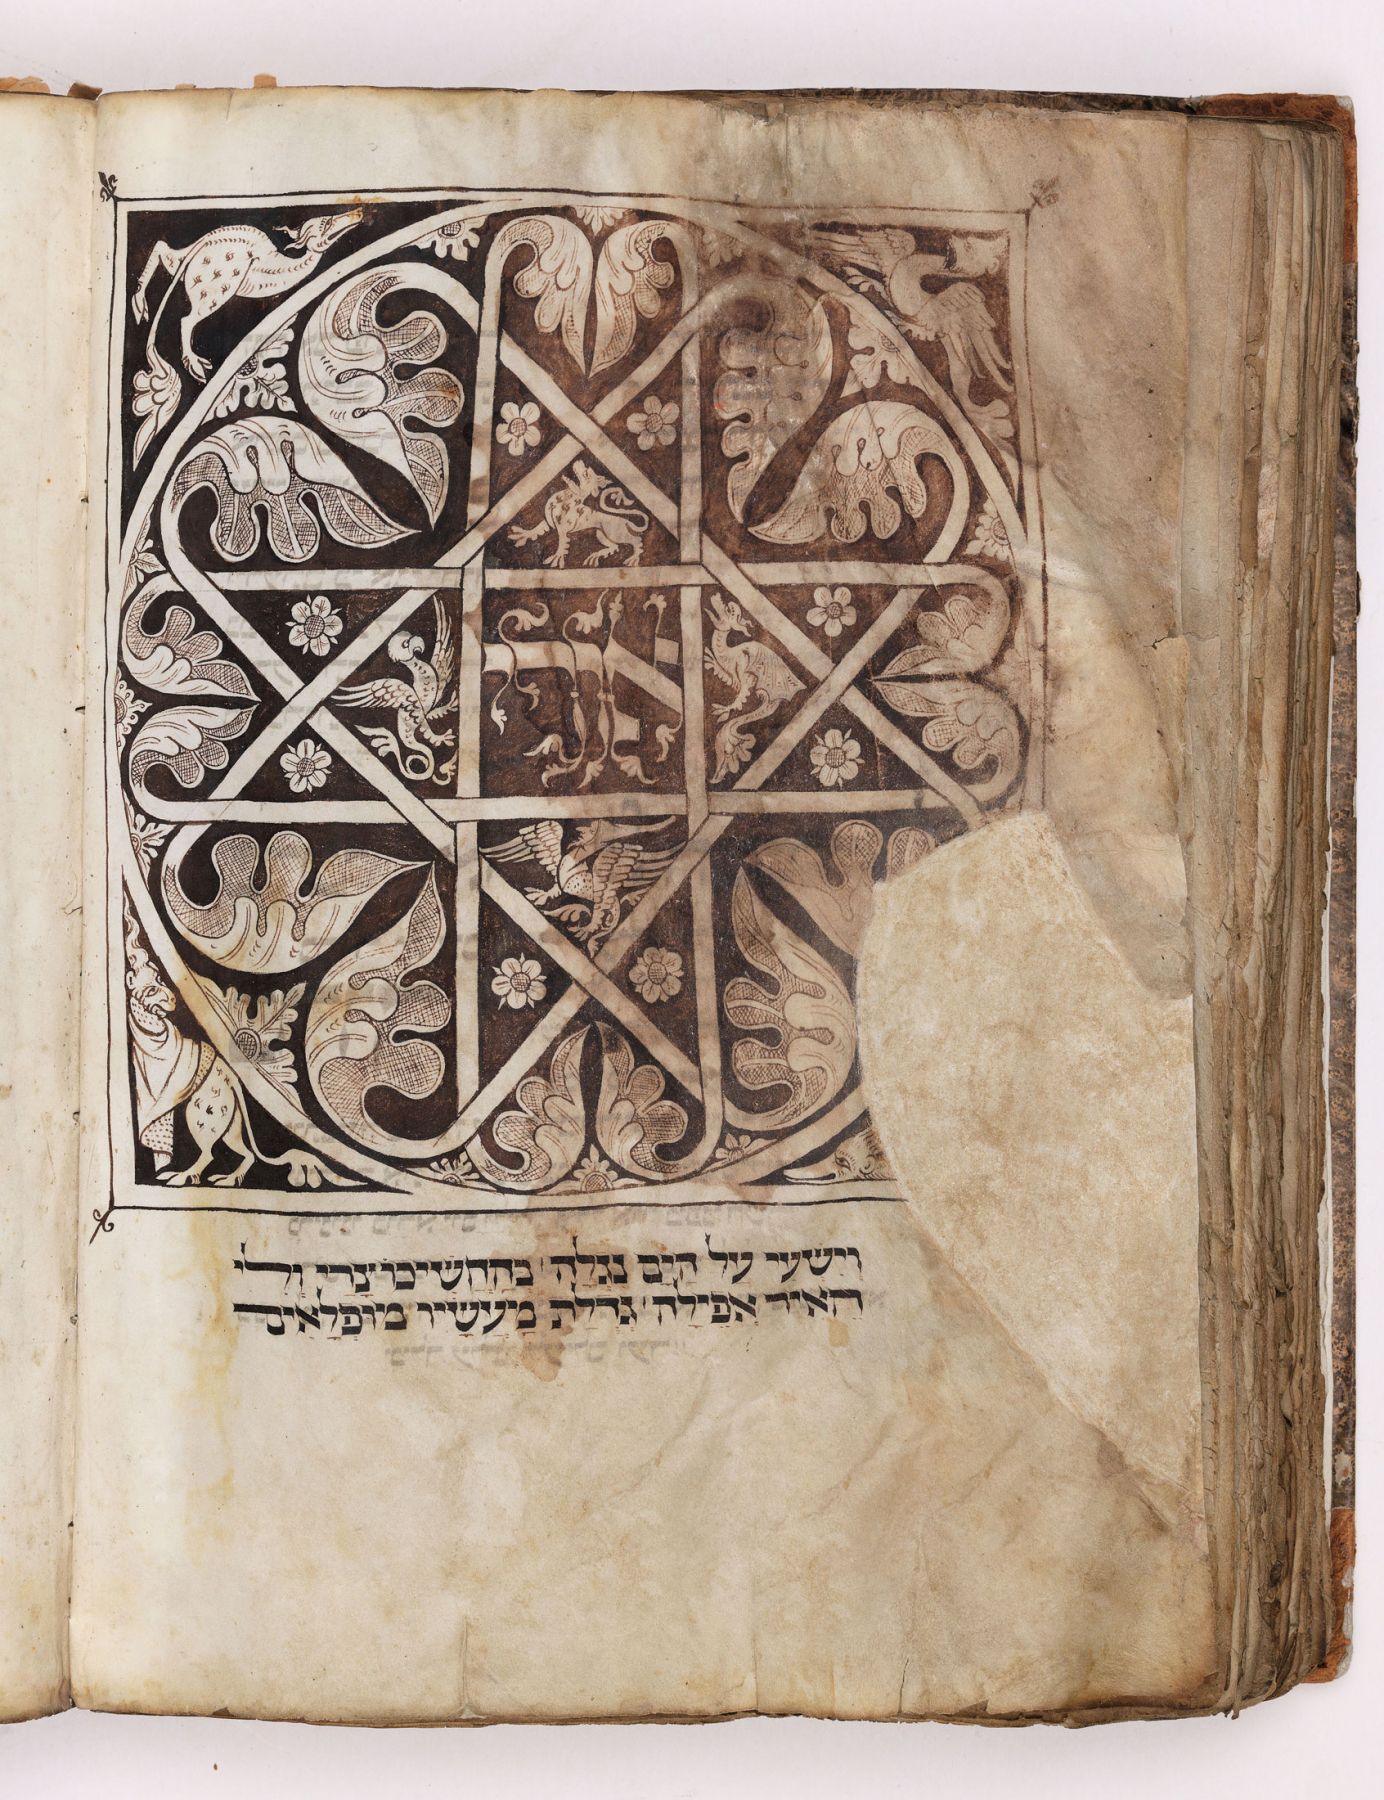 אורי
וישעי על הים נגלה בהחשיכו צרי ולי
האיר אפילה גדלת מעשיו מופלאים